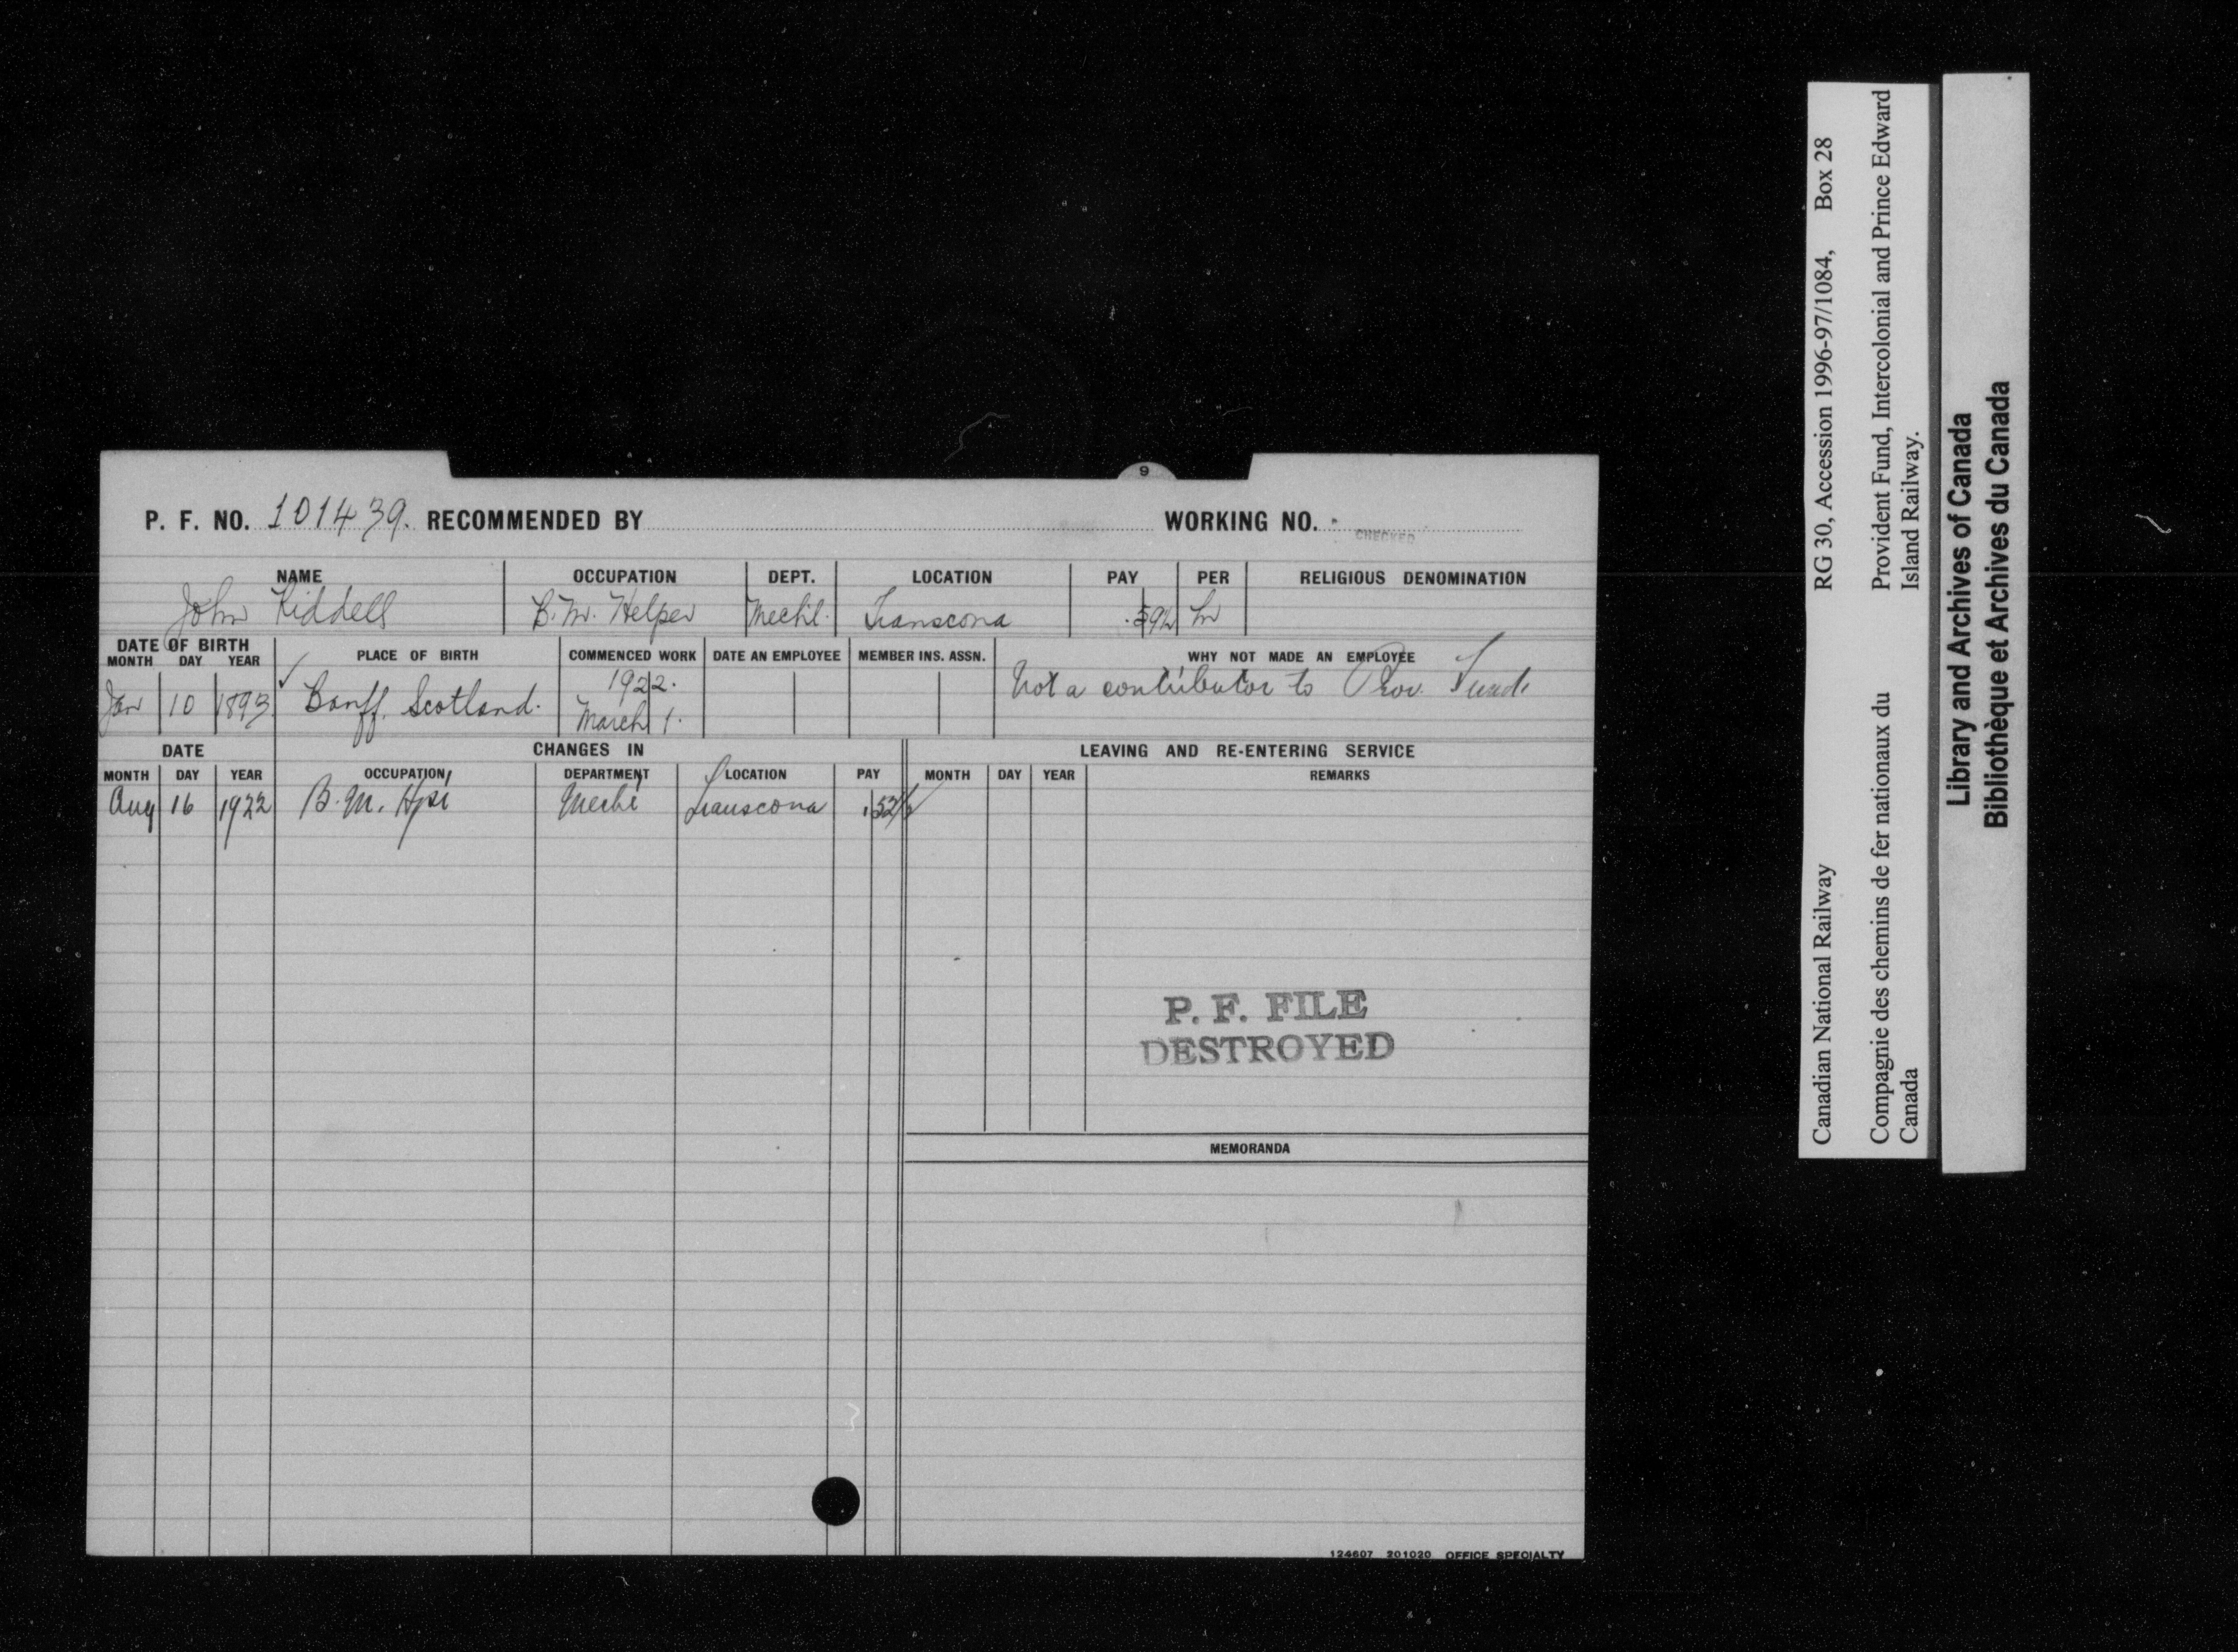 9
P. F. NO. 101439. RECOMMENDED BY WORKING NO.
CHECKED
NAME OCCUPATION DEPT. LOCATION PAY PER RELIGIOUS DENOMINATION
John Kiddell B.M. Helper Mech'l. Transcona hr
DATE OF BIRTH
MONTH DAY YEAR PLACE OF BIRTH COMMENCED WORK DATE AN EMPLOYEE MEMBER INS. ASSN. WHY NOT MADE AN EMPLOYEE
Jan 10 1893 Banff, Scotland. 1922. March 1. Not a contributor to Prov. Fund
DATE CHANGES IN LEAVING AND RE-ENTERING SERVICE
MONTH DAY YEAR OCCUPATION DEPARTMENT LOCATION PAY MONTH DAY YEAR REMARKS
Aug 16 1922 B.M. Transcona
P. F. FILE
DESTROYED
MEMORANDA
124607 201020 OFFICE SPECIALTY
Canadian National Railway RG 30, Accession 1996-97/1084, Box 28
Compagnie des chemins de fer nationaux du Canada
Provident Fund, Intercolonial and Prince Edward
Island Railway.
Library and Archives of Canada
Bibliothèque et Archives du Canada